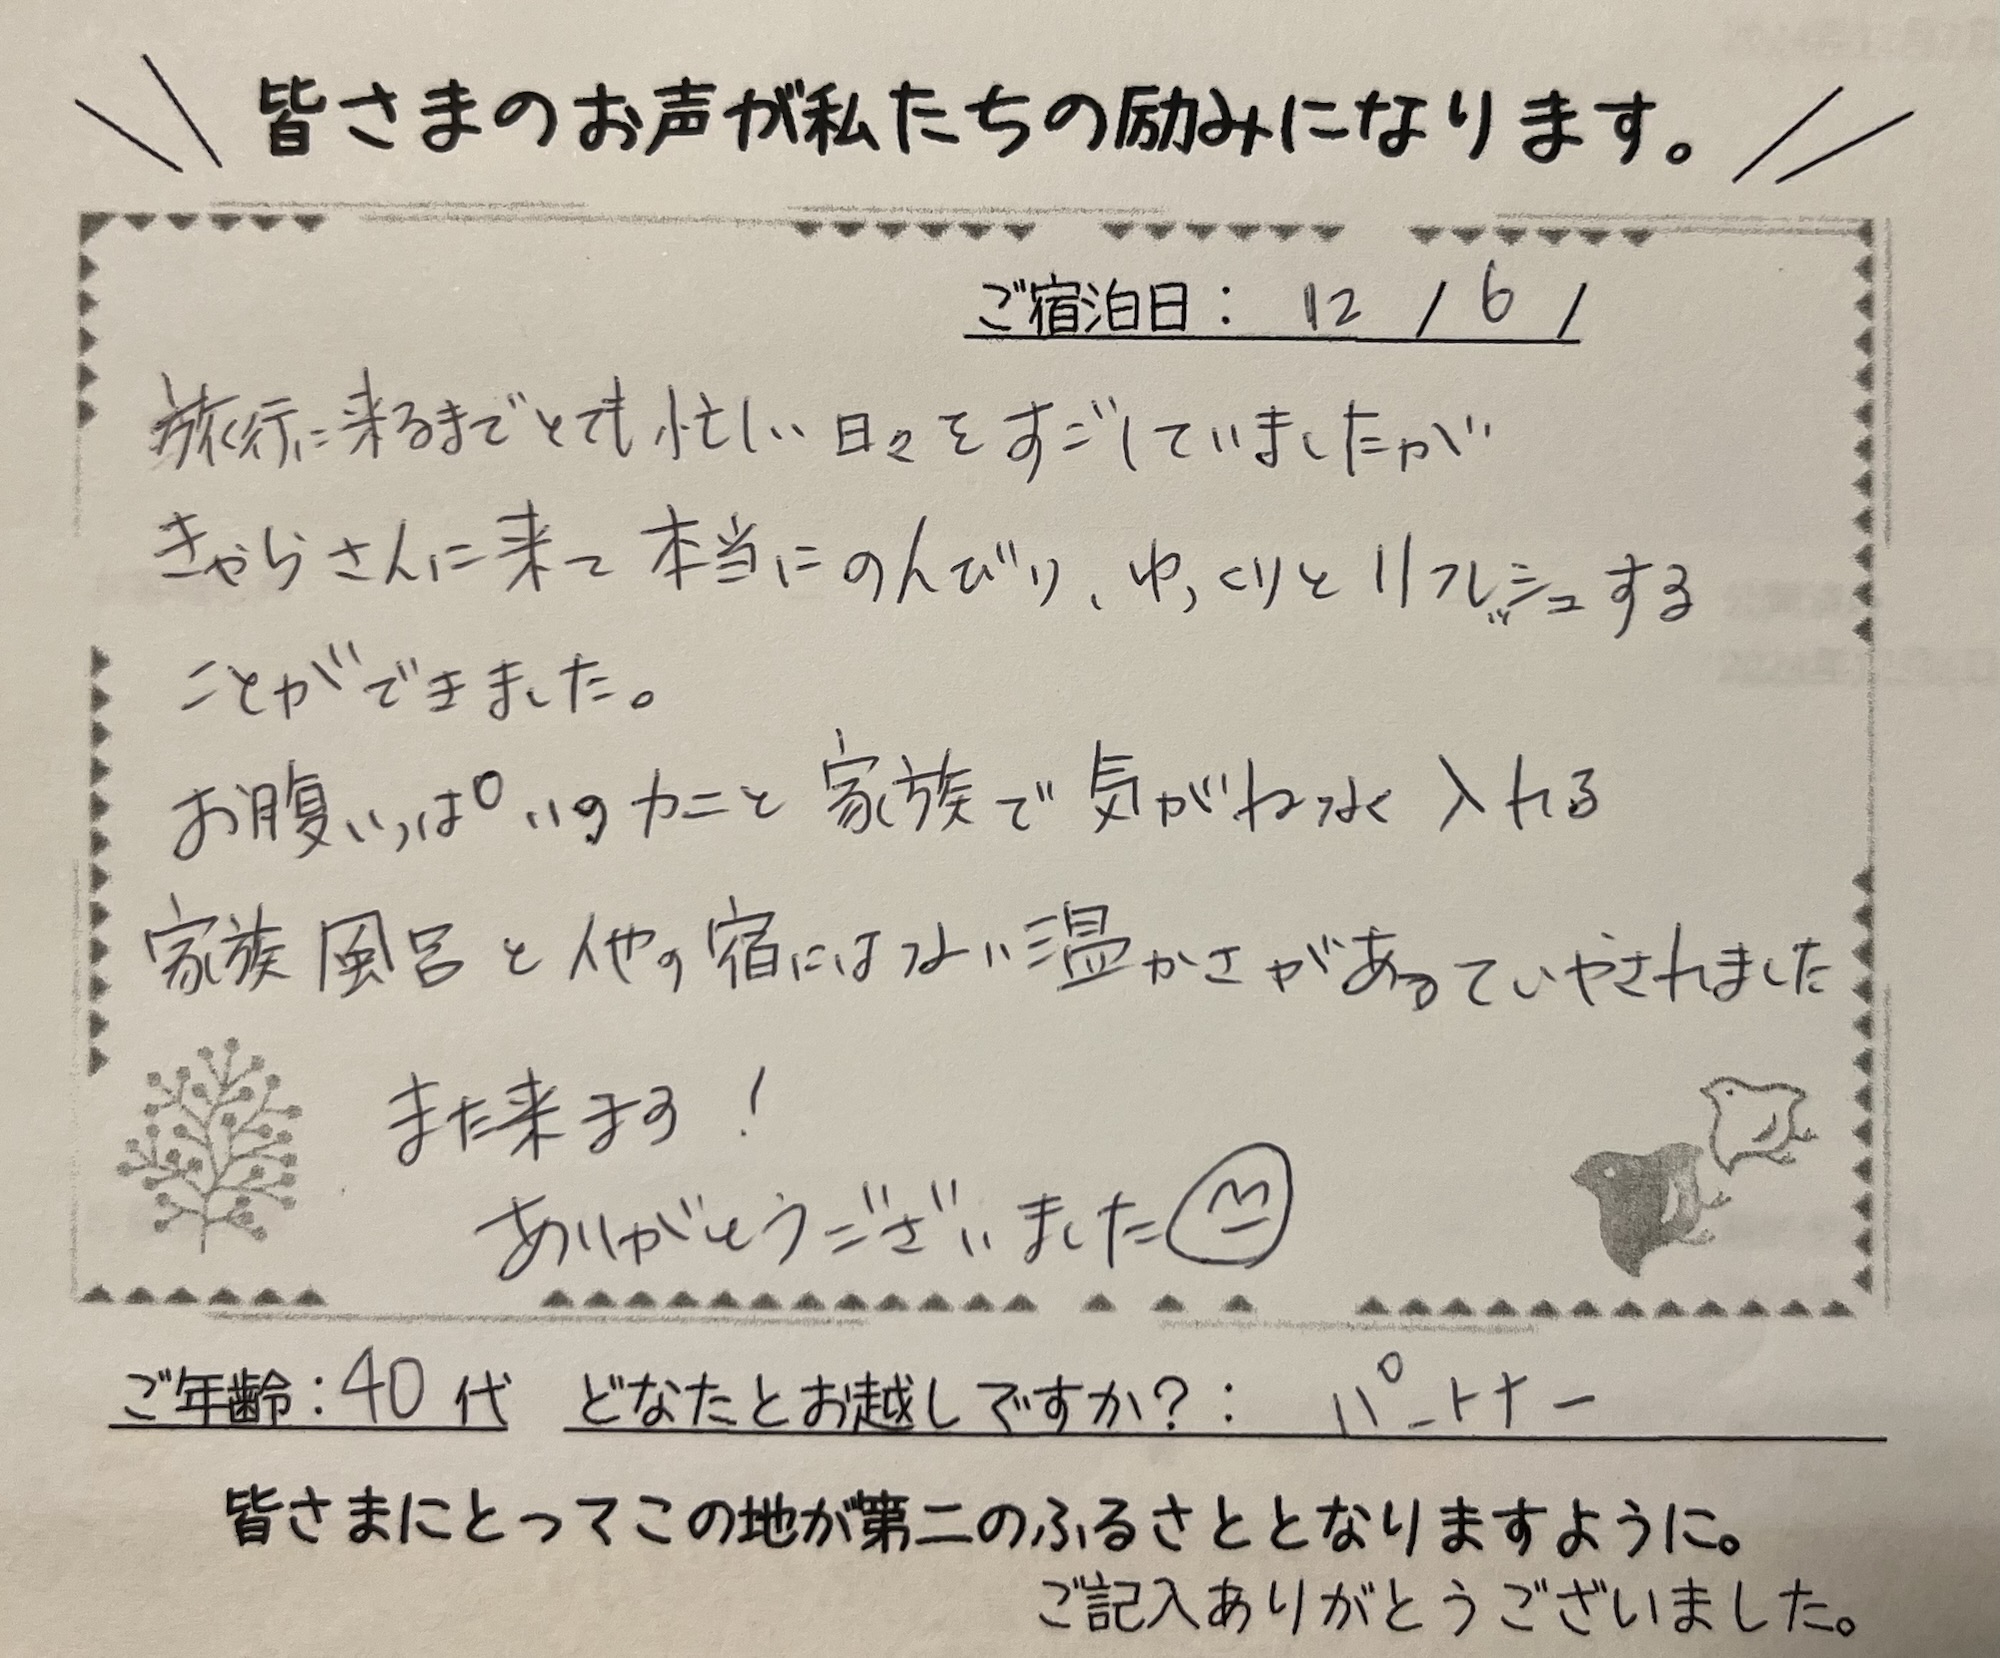 皆さまのお声が私たちの励みになります。
ご宿泊日： 12 / 6 /
旅行に来るまでとても忙しい日々をすごしていましたが
きゃらさんに来て本当にのんびり、ゆっくりとリフレッシュする
ことができました。
お腹いっぱいのカニと家族で気がねなく入れる
家族風呂と他の宿にはない温かさがあっていやされました
また来ます！
ありがとうございました
ご年齢：40代 どなたとお越しですか？： パートナー
皆さまにとってこの地が第二のふるさととなりますように。
ご記入ありがとうございました。